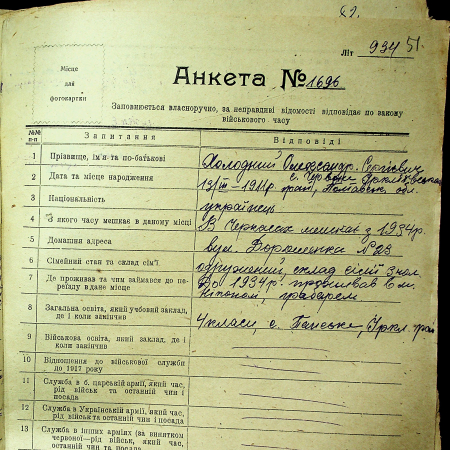 62.
Літ 934 51.
Місце
для
фотокартки
Анкета № 1696
Заповнюється власноручно, за неправдиві відомості відповідає по закону
військового часу
№№ п-п Запитання Відповіді
1 Прізвище, ім'я та по-батькові Холодний Олександр Сергійович
2 Дата та місце народження с. Червоне
13/III-1911р. Полтавськ. обл.
3 Національність українець
4 З якого часу мешкає в даному місці В Черкасах мешкає з 1934р.
5 Домашня адреса вул. Дорошенка № 23
6 Сімейний стан та склад сім'ї одружений, склад сім'ї
7 Де проживав та чим займався до пе-
реїзду в дане місце До 1934р. проживав в м.
8 Загальна освіта, який учбовий заклад,
де і коли закінчив 4 класи, с.
9 Військова освіта, який заклад, де і
коли закінчив
10 Відношення до військової служби
до 1917 року
11 Служба в б. царській армії, який час,
рід військ та останній чин і
посада
12 Служба в Українській армії, який час,
рід військ та останній чин і посада
13 Служба в інших арміях (за винятком
червоної—рід військ, який час,
останній чин та посада